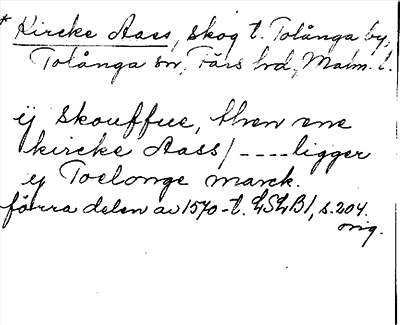 * Kircke Aass, skog t. Tolånga by,
Tolånga sn, Färs hd, Malm. l.
ij Skouffue, then ene
kircke Aass / ---- ligger
ij Toelonge marck.
förra delen av 1570-t. LSLB1, s. 204.
orig.